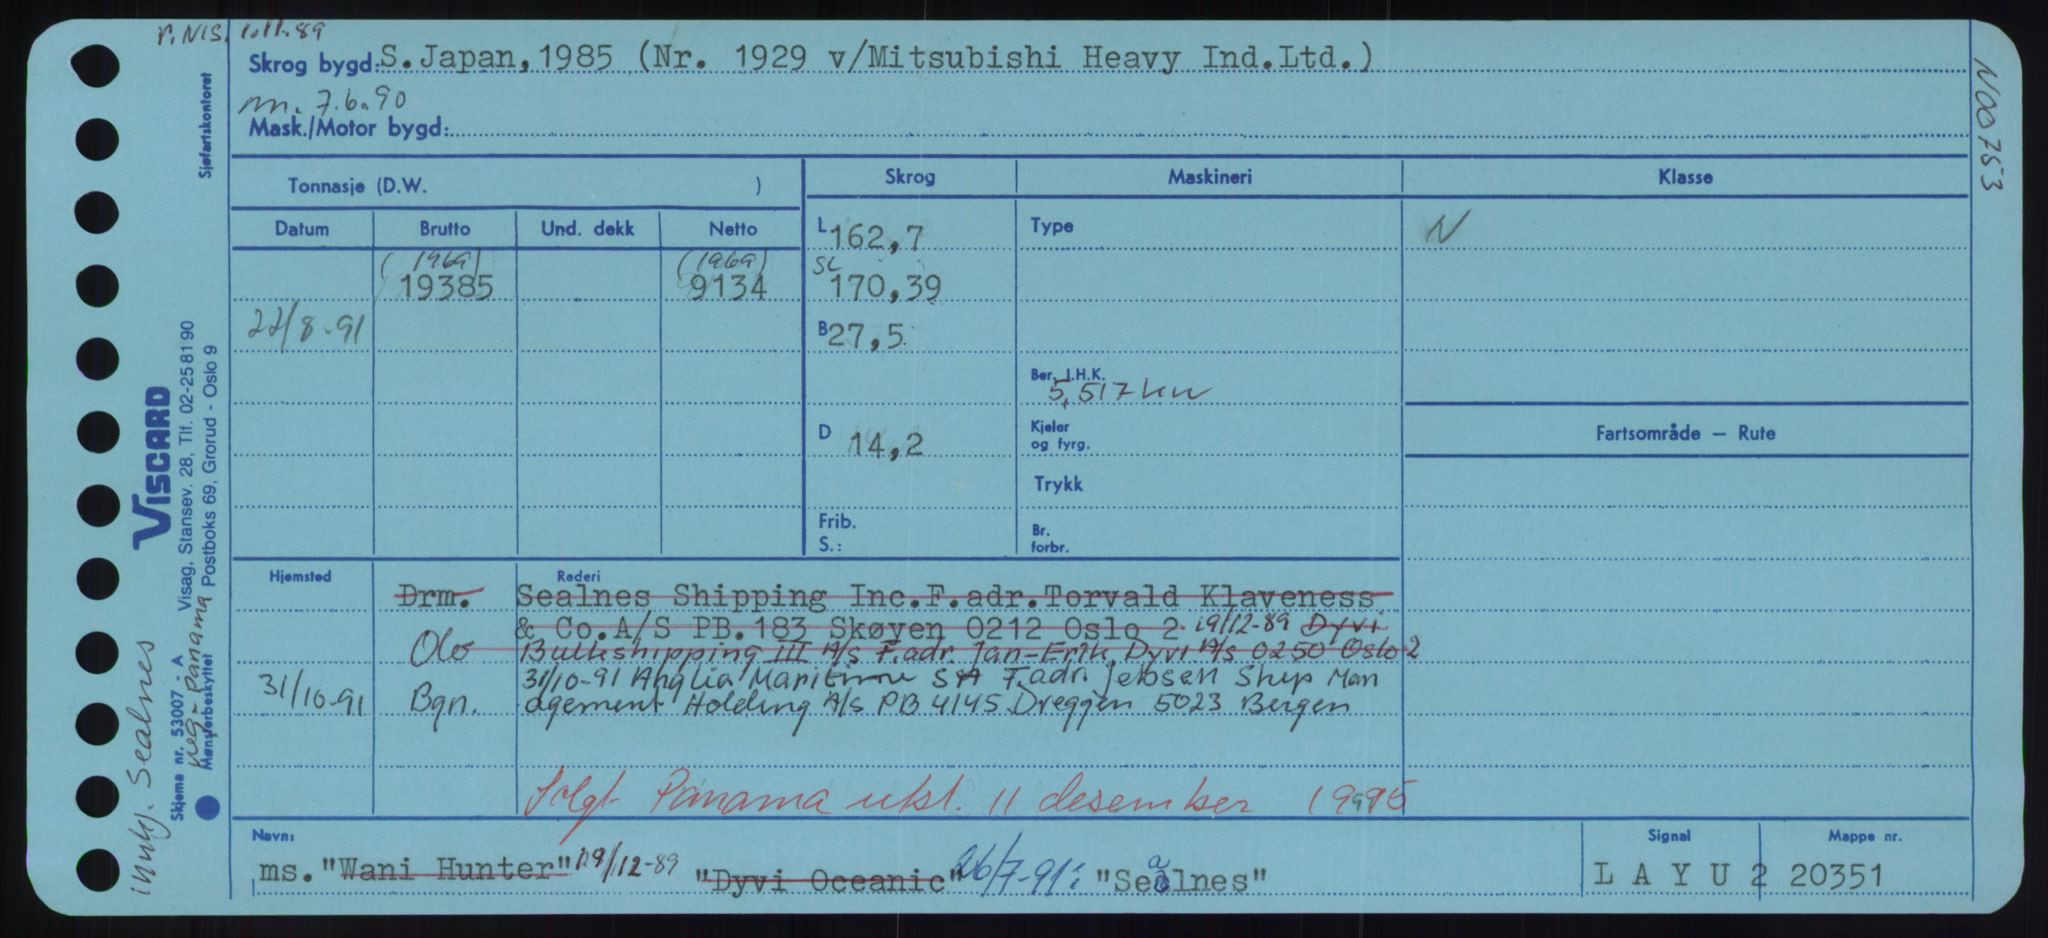 r. NIS. 1.11.89
Skrog bygd: S. Japan, 1985 (Nr. 1929 v/Mitsubishi Heavy Ind.Ltd.)
m. 7.6.90
Mask./Motor bygd:
N00753
Sjøfartskontoret
Tonnasje (D.W. )
Skrog
Maskineri
Klasse
Datum
Brutto
Und. dekk
Netto
L 162,7
Type
N
(1969)
(1969)
SL
19385
9134
170,39
22/8-91
B 27,5
Ber. I.H.K.
5,517 kW
D 14,2
Kjeler
og fyrg.
Fartsområde — Rute
Trykk
Frib.
S.:
Br.
forbr.
VISCARD
Visag, Stansev. 28, Tlf. 02-25 81 90
Postboks 69, Grorud - Oslo 9
Skjema nr. 53007 - A
Mønsterbeskyttet
reg - Panama
innkj. Sealnes
Hjemsted
Rederi
Drm. Sealnes Shipping Inc.F.adr.Torvald Klaveness
& Co.A/S PB.183 Skøyen 0212 Oslo 2 19/12-89 Dyvi
Olo Bulkshipping III A/s F.adr. Jan-Erik Dyvi A/s 0250 Oslo 2
31/10-91 Anglia Maritime SA F.adr. Jebsen Ship Man
31/10-91 Bgn. agement Holding A/s PB 4145 Dreggen 5023 Bergen
Solgt Panama utst. 11 desember 1995
Navn:
Signal
Mappe nr.
ms. "Wani Hunter" 19/12-89 "Dyvi Oceanic" 26/7-91: "Sealnes"
L A Y U 2
20351